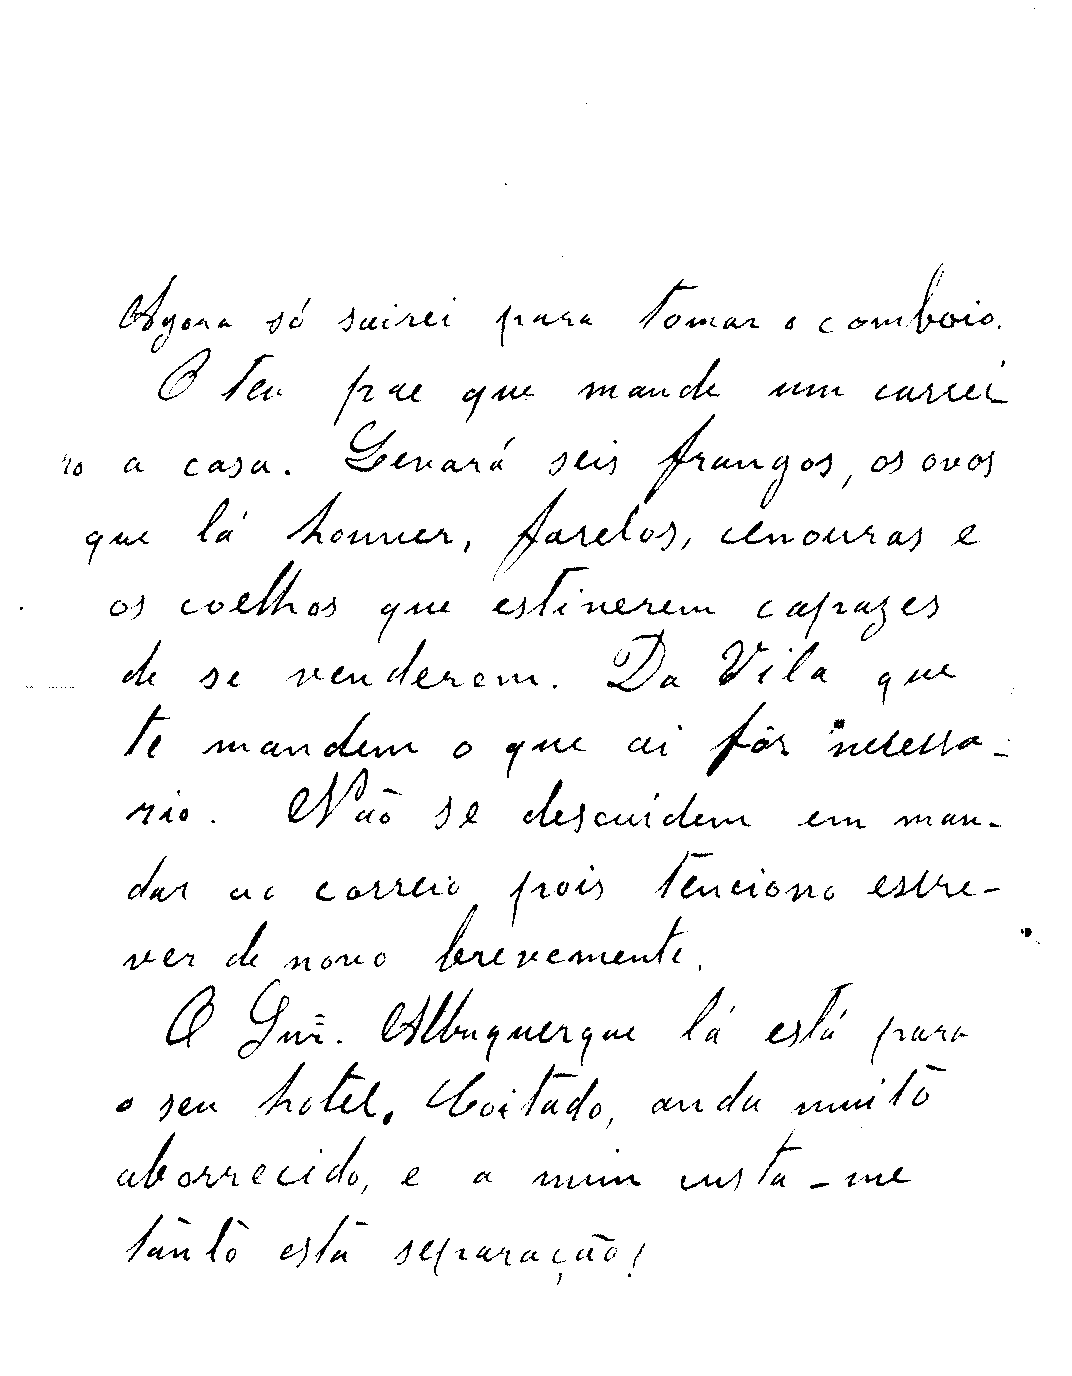 Agora só sairei para tomar o comboio.
O teu pae que mande um carrei
ro a casa. Levará seis frangos, os ovos
que lá houver, farelos, cenouras e
os coelhos que estiverem capazes
de se venderem. Da Vila que
te mandem o que ai fôr necessa-
rio. Não se descuidem em man-
dar ao correio, pois tenciono escre-
ver de novo brevemente.
O Snr. Albuquerque lá está para
o seu hotel. Coitado, anda muito
aborrecido, e a mim custa-me
tanto esta separação!